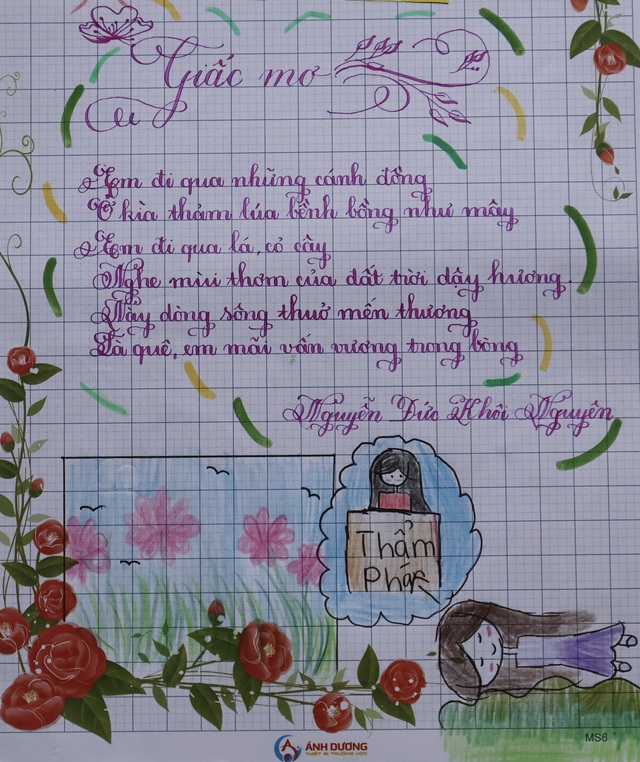 Giấc mơ
Em đi qua những cánh đồng
Ơ kìa thảm lúa bềnh bồng như mây
Em đi qua lá, cỏ cây
Nghe mùi thơm của đất trời dậy hương
Này dòng sông thuở mến thương
Là quê, em mãi vấn vương trong lòng
Nguyễn Đức Khôi Nguyên
Thẩm
Phán
MS6
ÁNH DƯƠNG
THIẾT BỊ TRƯỜNG HỌC